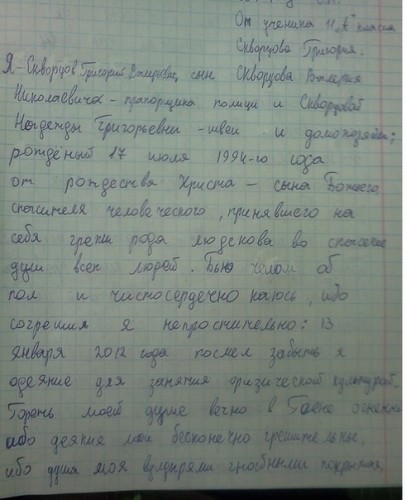 От ученика 11 "А" класса
Скворцова Григория.
Я - Скворцов Григорий Валерьевич, сын Скворцова Валерия
Николаевича - прапорщика полиции и Скворцовой
Надежды Григорьевны - швеи и домохозяйки;
рождёный 17 июля 1994-го года
от рождества Христа - сына Божьего
спасителя человеческого, принявшего на
себя грехи рода людскова во спасение
душ всех людей. Бью челом об
пол и чистосердечно каюсь, ибо
согрешил я непростительно: 13
января 2012 года посмел забыть я
одеяние для занятия физической культурой.
Гореть моей душе вечно в Гиене огненной
ибо деяния мои бесконечно грешительны,
ибо душа моя гнойными покрытая,